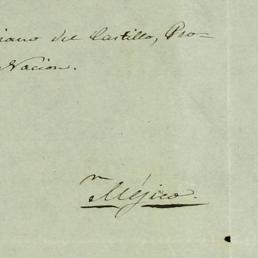 iano del Castillo, Pro-
Nacion.
Méjico.